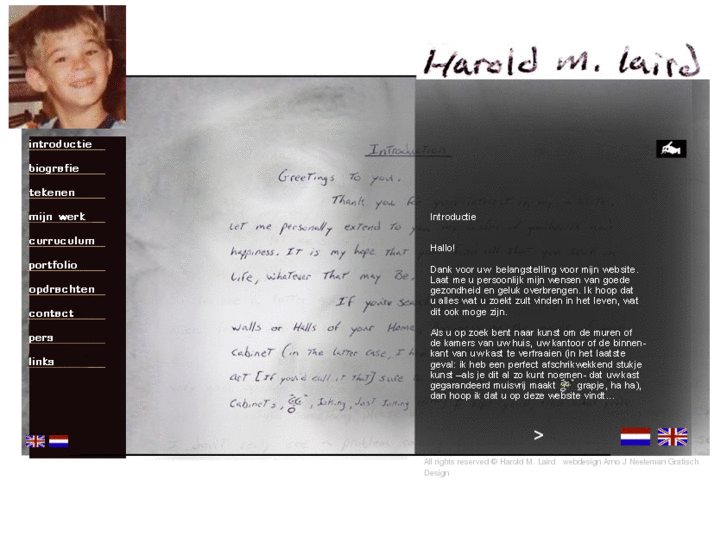 Harold m. laird
introductie
biografie
tekenen
mijn werk
curruculum
portfolio
opdrachten
contact
pers
links
Introduction
Greetings To you.
Thank you for your interest in my website.
Let me personally extend to you, my wishes of
happiness. It is my hope that you
Life, whatever That may Be.
If you're sear
walls or Halls of your Home,
cabinet (in the latter case, I h
act [If you'd call it that] sure
Cabinets, Joking, Just Joking
Introductie
Hallo!
Dank voor uw belangstelling voor mijn website.
Laat me u persoonlijk mijn wensen van goede
gezondheid en geluk overbrengen. Ik hoop dat
u alles wat u zoekt zult vinden in het leven, wat
dit ook moge zijn.
Als u op zoek bent naar kunst om de muren of
de kamers van uw huis, uw kantoor of de binnen-
kant van uw kast te verfraaien (in het laatste
geval: ik heb een perfect afschrikwekkend stukje
kunst –als je dit al zo kunt noemen- dat uw kast
gegarandeerd muisvrij maakt grapje, ha ha),
dan hoop ik dat u op deze website vindt...
>
All rights reserved © Harold M. Laird webdesign Arno J Neeleman Grafisch
Design